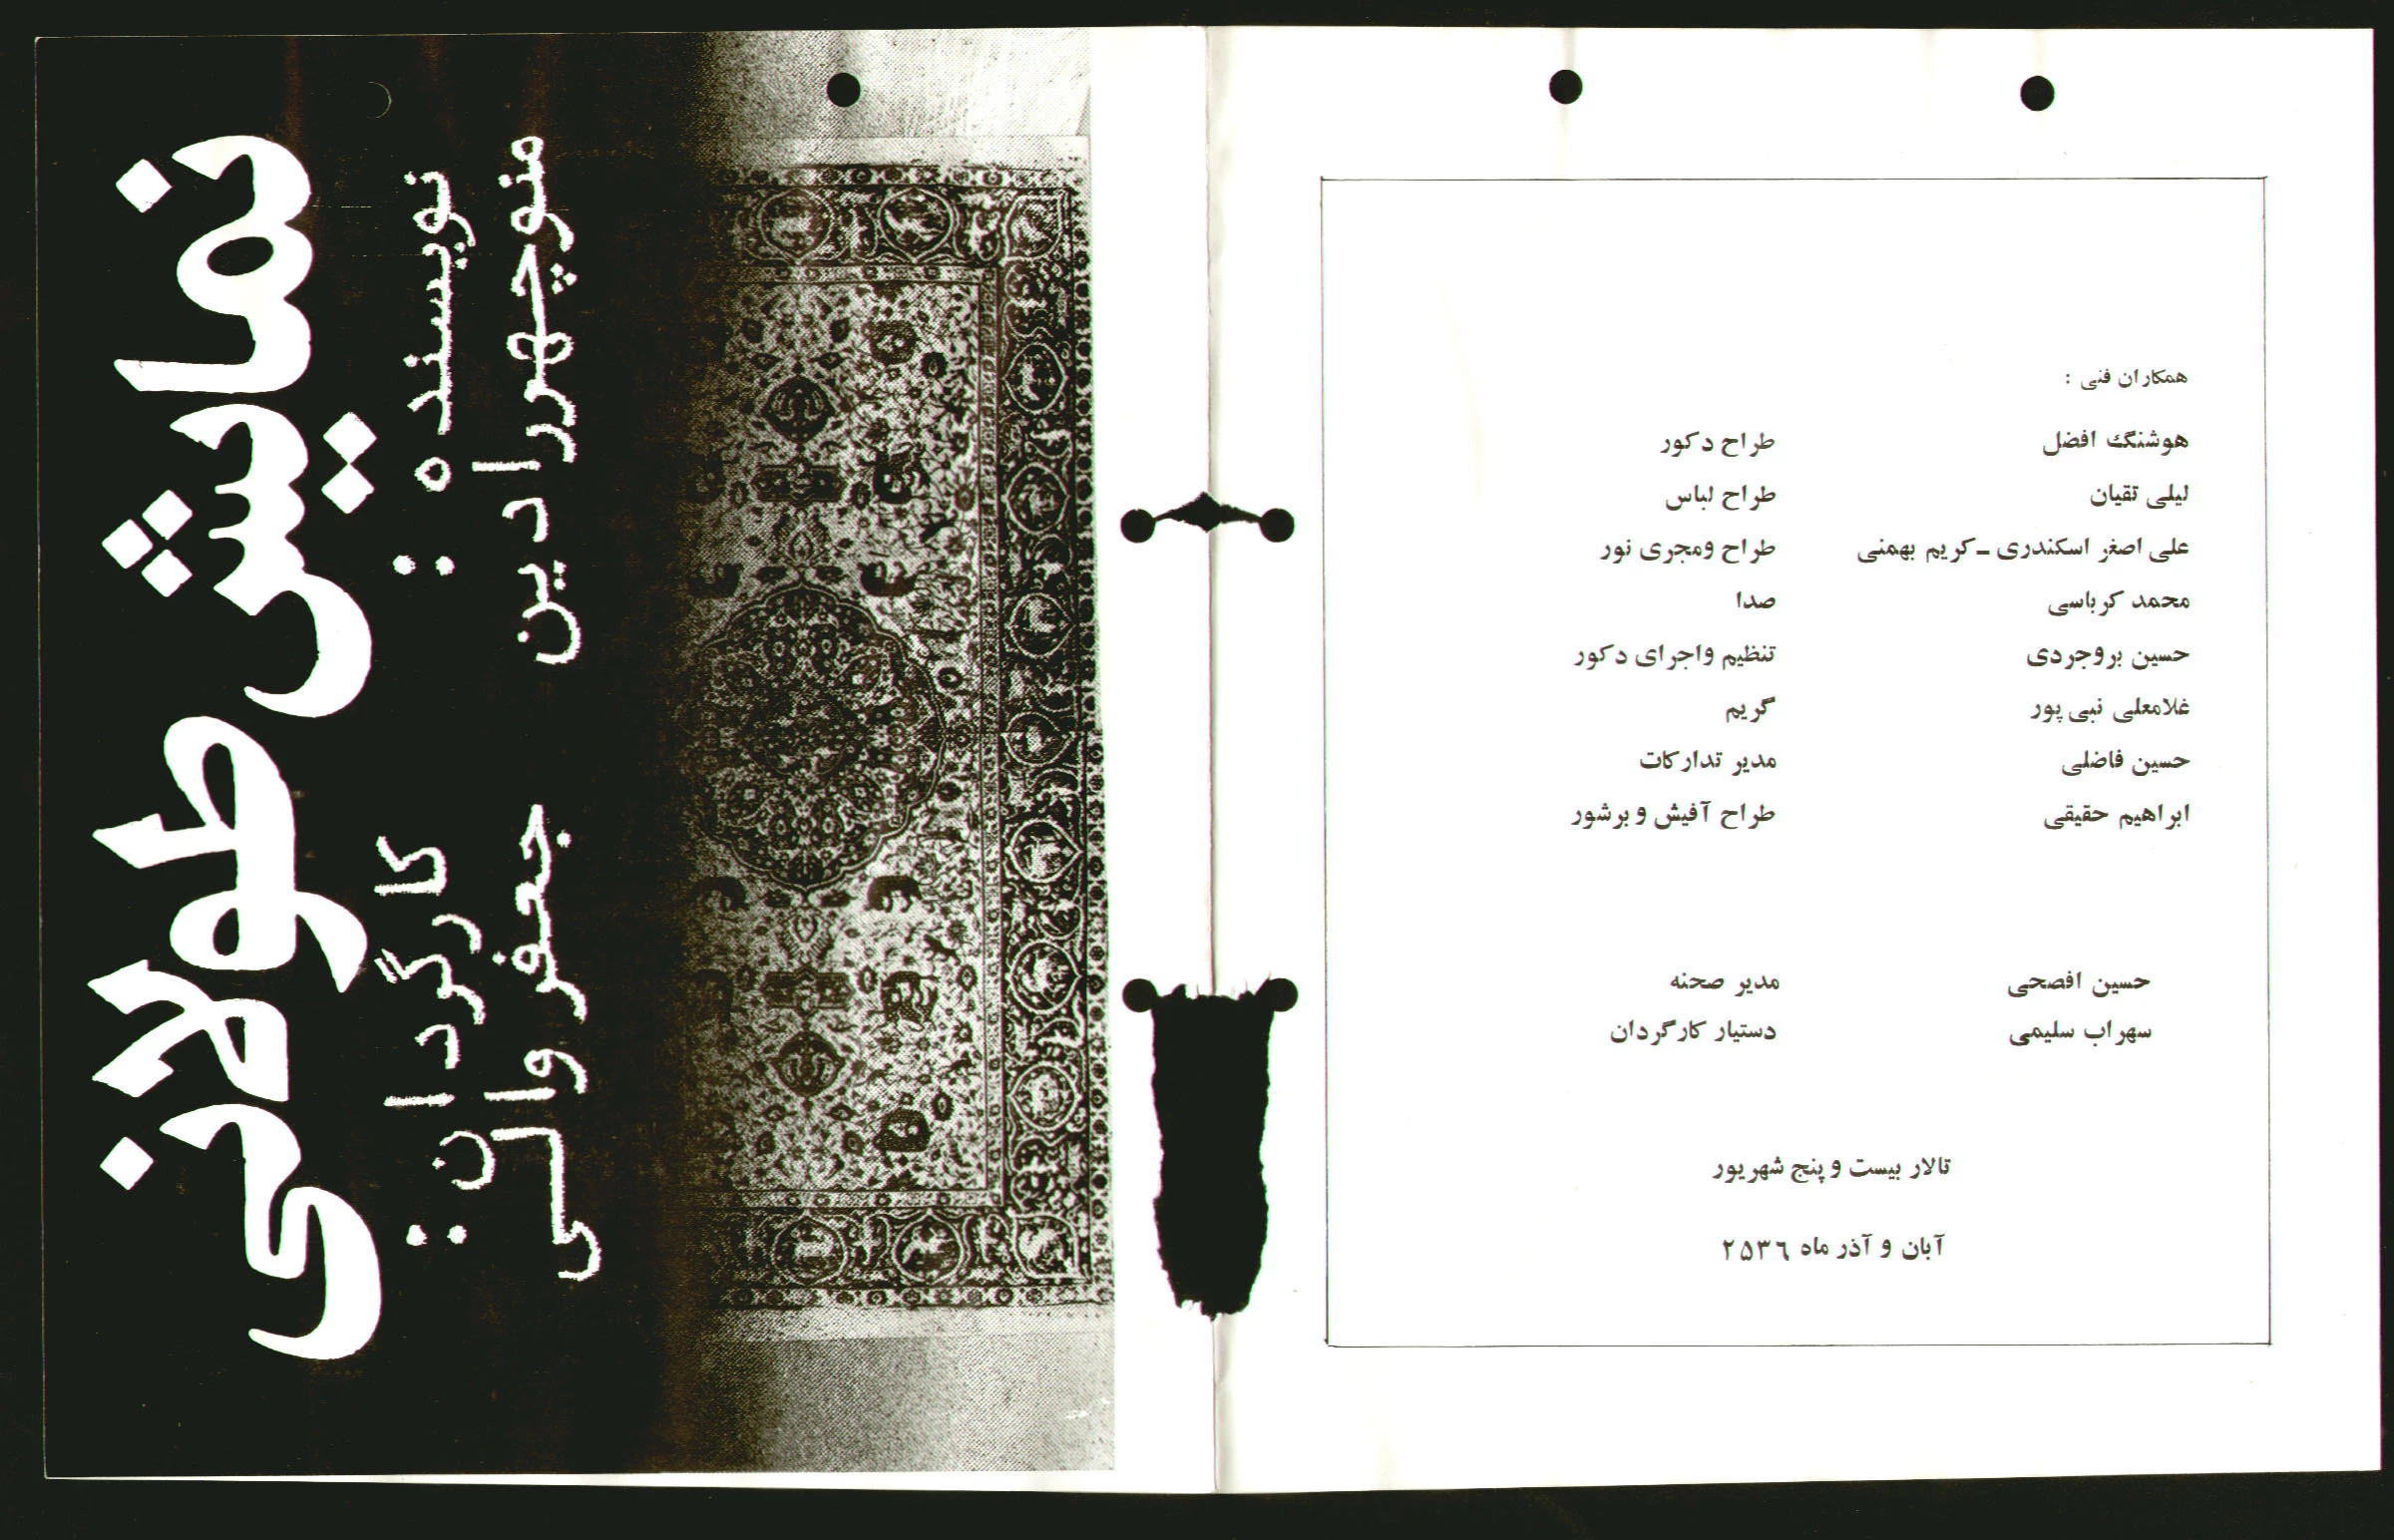 نمایش طولانی
نویسنده :
منوچهر رادین
کارگردان :
جعفر والی
همکاران فنی :
هوشنگ افضل طراح دکور
لیلی تقیان طراح لباس
علی اصغر اسکندری ـ کریم بهمنی طراح ومجری نور
محمد کرباسی صدا
حسین بروجردی تنظیم واجرای دکور
غلامعلی نبی پور گریم
حسین فاضلی مدیر تدارکات
ابراهیم حقیقی طراح آفیش و برشور
حسین افصحی مدیر صحنه
سهراب سلیمی دستیار کارگردان
تالار بیست و پنج شهریور
آبان و آذر ماه ۲۵۳۶